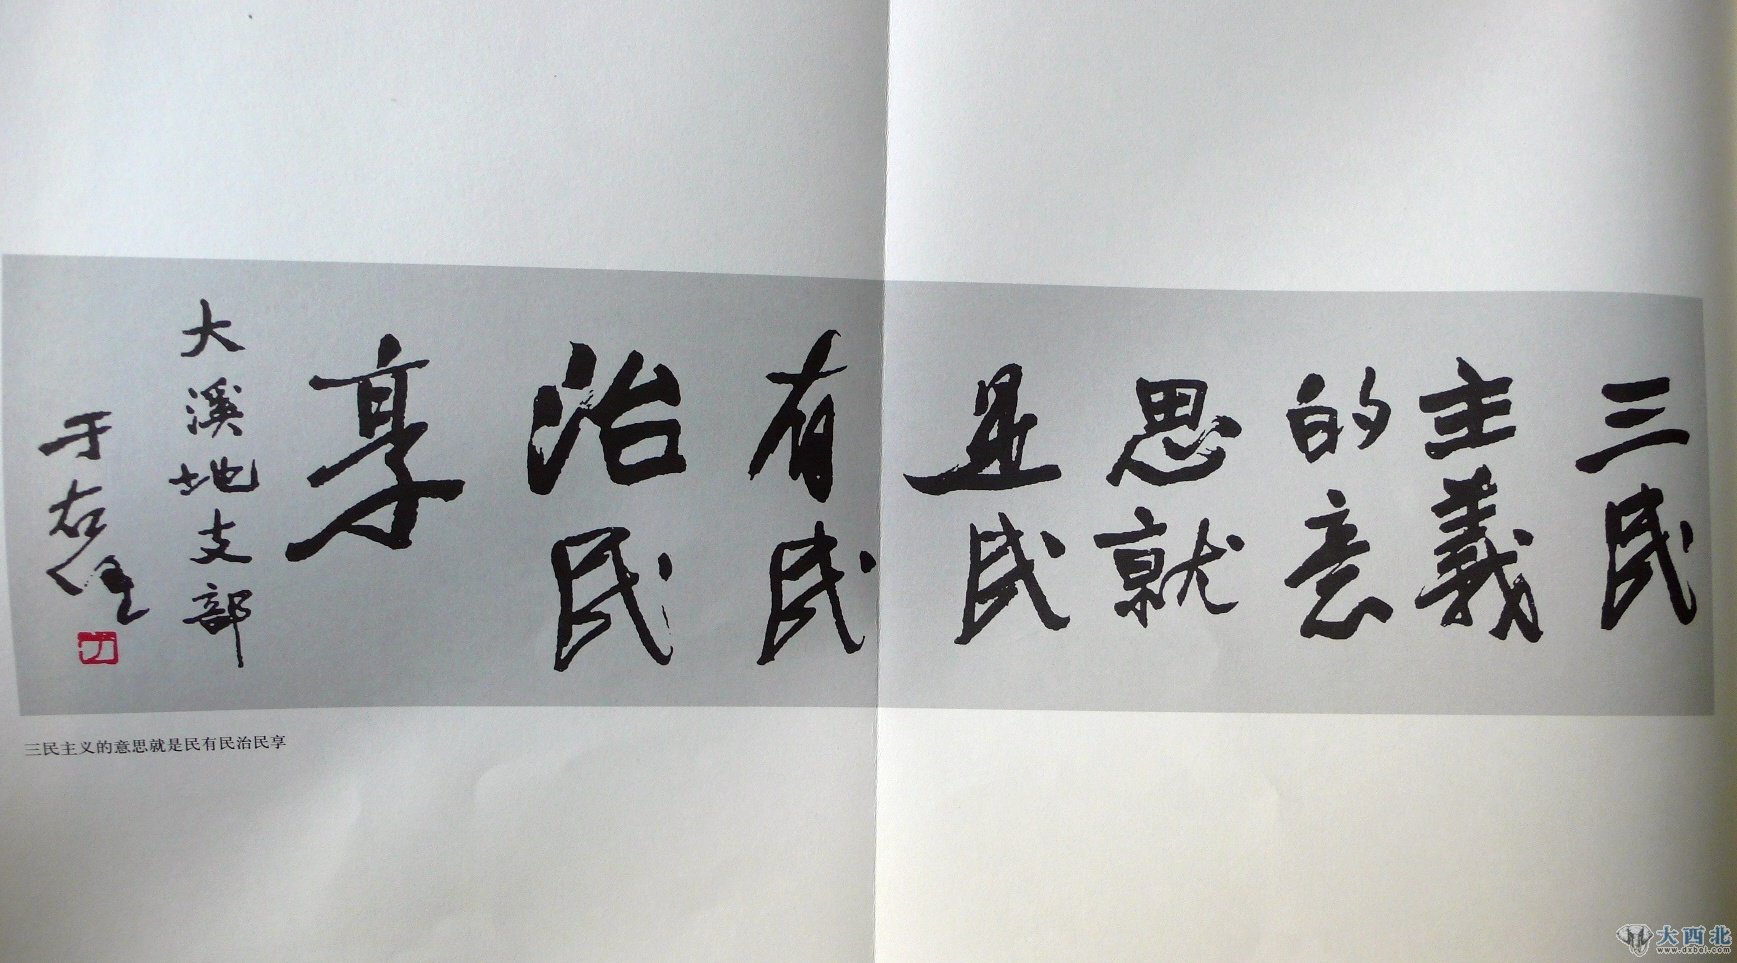 三民
主義
的意
思就
是民
有民
治民
享
大溪地支部
于右任
三民主义的意思就是民有民治民享
大西北
www.dxbei.com